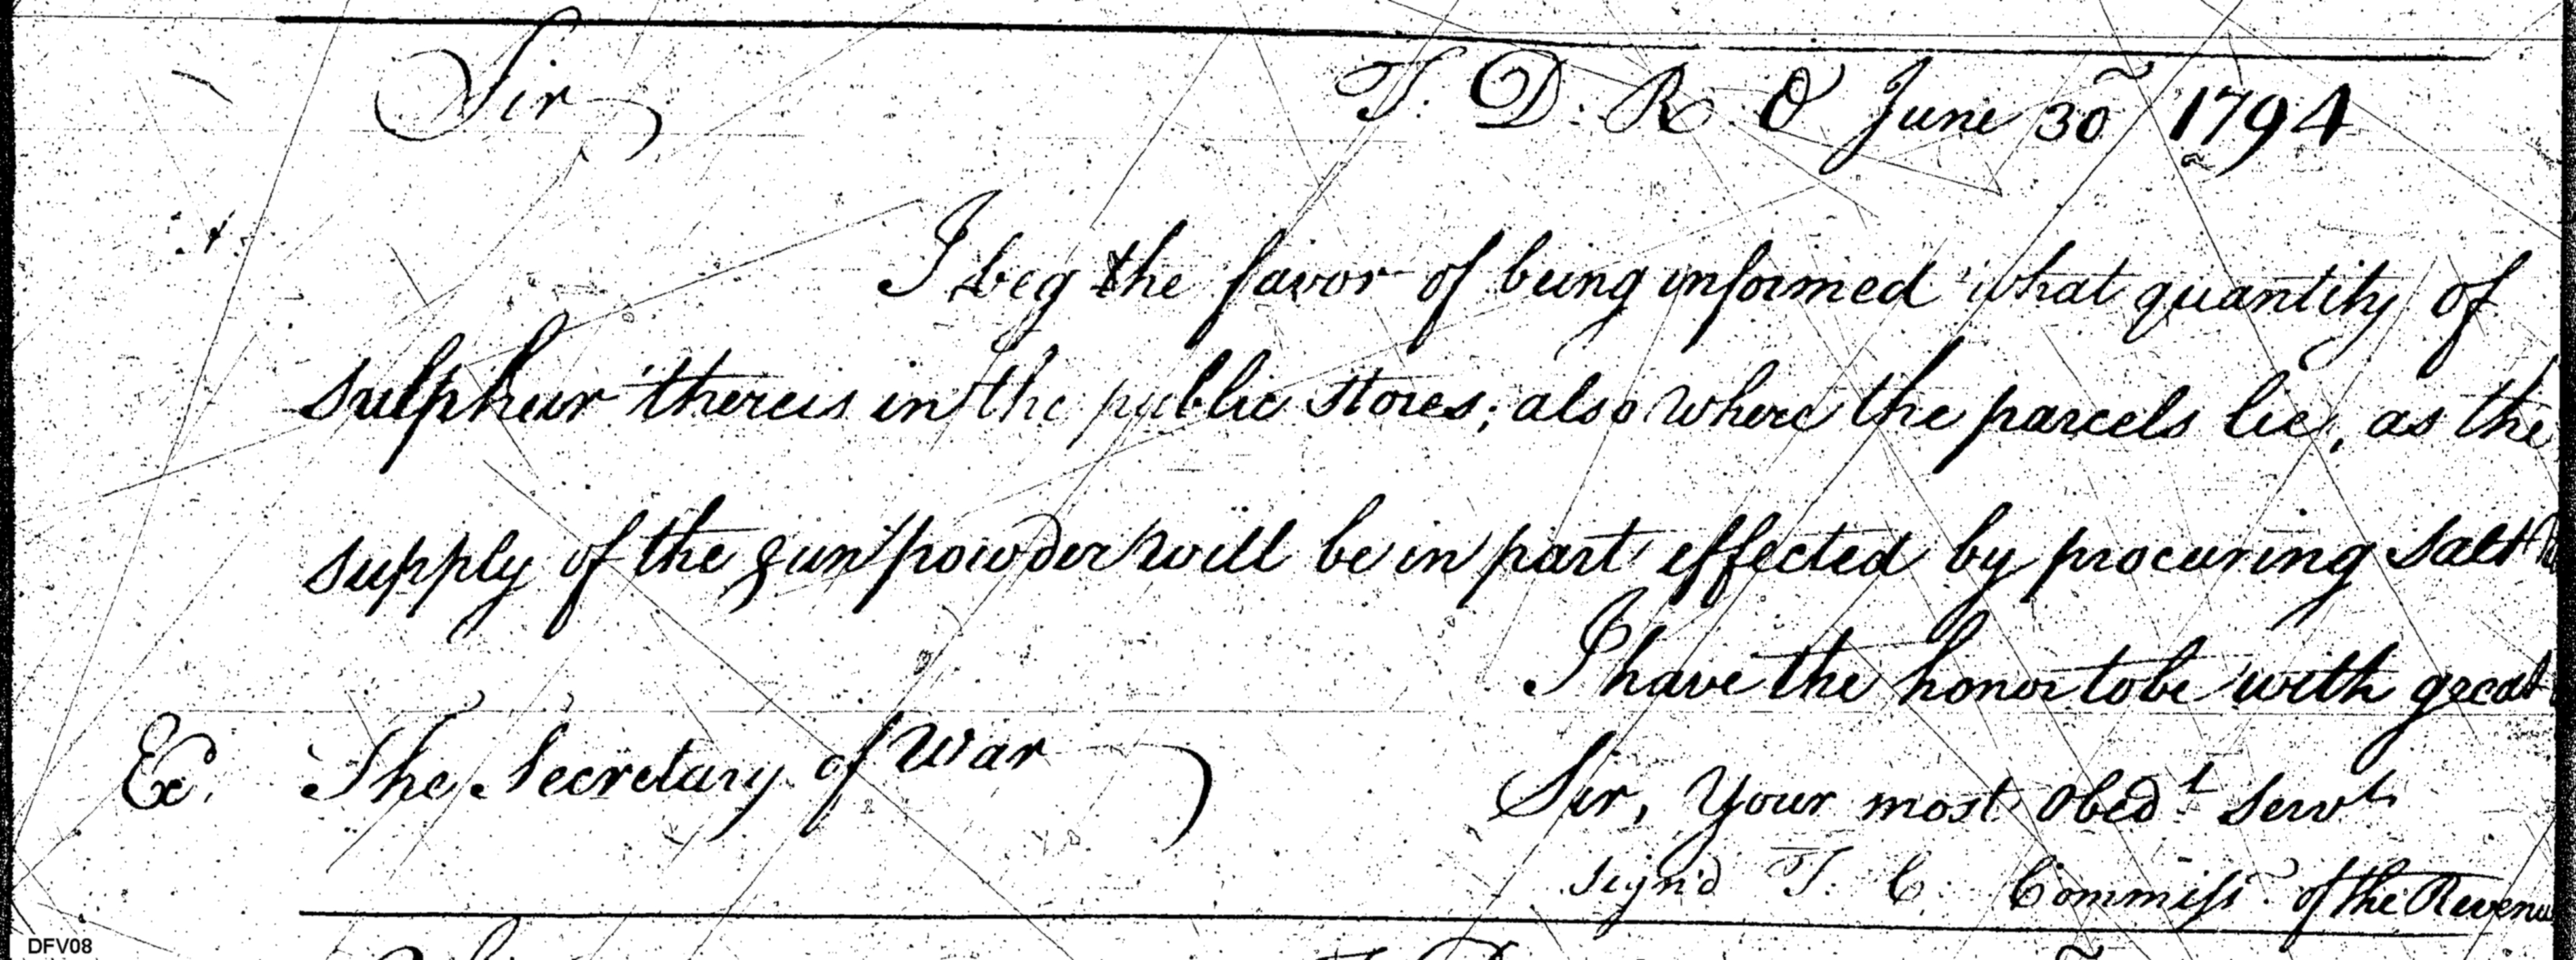 Sir T. D. R. O June 30 1794
I beg the favor of being informed what quantity of
sulphur there is in the public stores; also where the parcels lie, as the
supply of the gun powder will be in part effected by procuring salt
I have the honor to be with great
Ex. The Secretary of War Sir, Your most Obedt Servt
signd T. C. Commiss. of the Revenue
DFV08